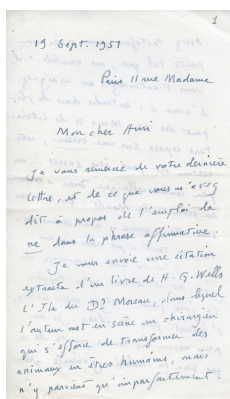 1
19 Sept. 1951
Paris 11 rue Madame
Mon cher Ami
Je vous remercie de votre dernière
lettre, et de ce que vous m'avez
dit à propos de l'emploi de
ne dans la phrase affirmative.
Je vous envoie une citation
extraite d'un livre de H. G. Wells
L'Ile du Dr Moreau, dans lequel
l'auteur met en scène un chirurgien
qui s'efforce de transformer des
animaux en êtres humains, mais
n'y parvient qu'imparfaitement.